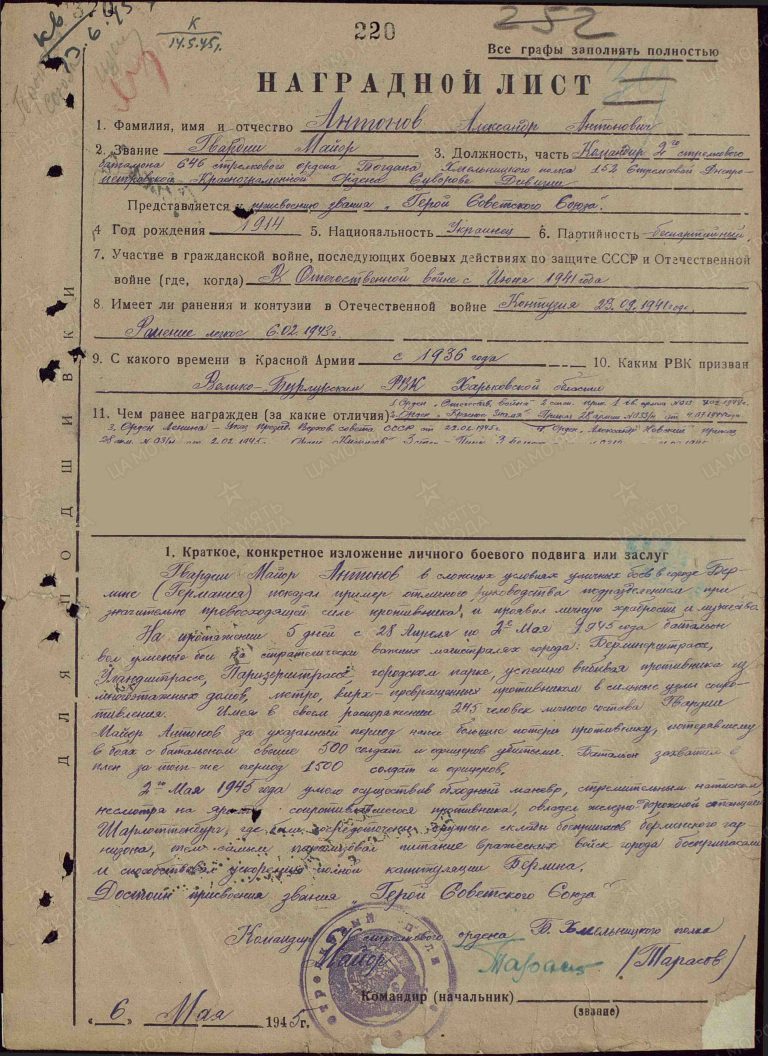 220
252
К
14.5.45г.
Все графы заполнять полностью
НАГРАДНОЙ ЛИСТ
1. Фамилия, имя и отчество Антонов Александр Антонович
2. Звание Гвардии Майор 3. Должность, часть Командир 2го стрелкового
батальона 646 стрелкового ордена Богдана Хмельницкого полка 152 Стрелковой Днепро-
петровской Краснознаменной Ордена Суворова Дивизии
Представляется к присвоению звания „Герой Советского Союза"
4 Год рождения 1914 5. Национальность Украинец 6. Партийность беспартийный
7. Участие в гражданской войне, последующих боевых действиях по защите СССР и Отечественной
войне (где, когда) В Отечественной войне с Июня 1941 года
8. Имеет ли ранения и контузии в Отечественной войне Контузия 23.09.1941 года,
Ранение легкое 6.02.1943г.
9. С какого времени в Красной Армии с 1936 года 10. Каким РВК призван
Велико-Бурлукским РВК Харьковской области
1. Орден „Отечеств. война" 2 степ.
11. Чем ранее награжден (за какие отличия) 2. Орден „Красное Знамя" Приказ 28 армии
3. Орден Ленина – Указ Презид. Верхов. совета СССР от 4. Орден „Александр Невский" приказ
1. Краткое, конкретное изложение личного боевого подвига или заслуг
Гвардии Майор Антонов в сложных условиях уличных боев в городе Бер-
лине (Германия) показал пример отличного руководства подразделением при
значительно превосходящей силе противника, и проявил личную храбрость и мужество
На протяжении 5 дней с 28 Апреля по 2е Мая 1945 года батальон
вел умелые бои на стратегически важных магистралях города: Берлинерштрассе,
Паризерштрассе, городском парке, успешно выбивая противника из
многоэтажных домов, метро, превращенных противником в сильные узлы сопро-
тивления. Имея в своем распоряжении 245 человек личного состава Гвардии
Майор Антонов за указанный период нанес большие потери противнику, потерявшему
в боях с батальоном свыше 500 солдат и офицеров убитыми. Батальон захватил в
плен за тот-же период 1500 солдат и офицеров.
2го Мая 1945 года умело осуществив обходный маневр, стремительным натиском,
несмотря на сопротивляющегося противника, овладел железно-дорожной станцией
Шарлоттенбург, где были сосредоточены крупные склады боеприпасов берлинского гар-
низона, тем самым парализовал питание вражеских войск города боеприпасами
и способствовал ускорению полной капитуляции Берлина.
Достоин присвоения звания „Герой Советского Союза"
Командир стрелкового ордена Б. Хмельницкого полка
Майор (Тарасов)
Командир (начальник)
(звание)
„6" Мая 1945г.
ДЛЯ ПОДШИВКИ